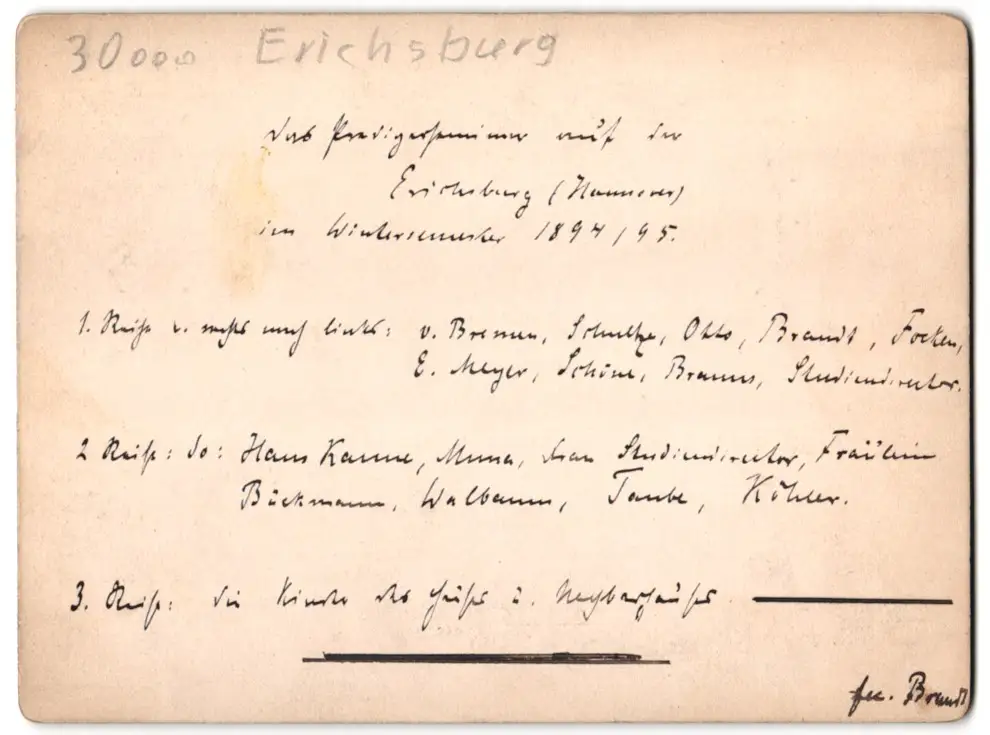 30000 Erichsburg
Das Predigerseminar auf der
Erichsburg (Hannover)
im Wintersemester 1894/95.
1. Reihe v. rechts nach links: v. Bremen, Schultze, Otto, Brandt, Focken,
E. Meyer, Schöne, Brauns, Studiendirector.
2 Reihe: do: Hans Kanne, Muna, Frau Studiendirector, Fräulein
Bückmann, Walbaum, Taube, Köhler.
3. Reihe: die Kinder des Hauses u. Nachbarhauses
fec. Brandt